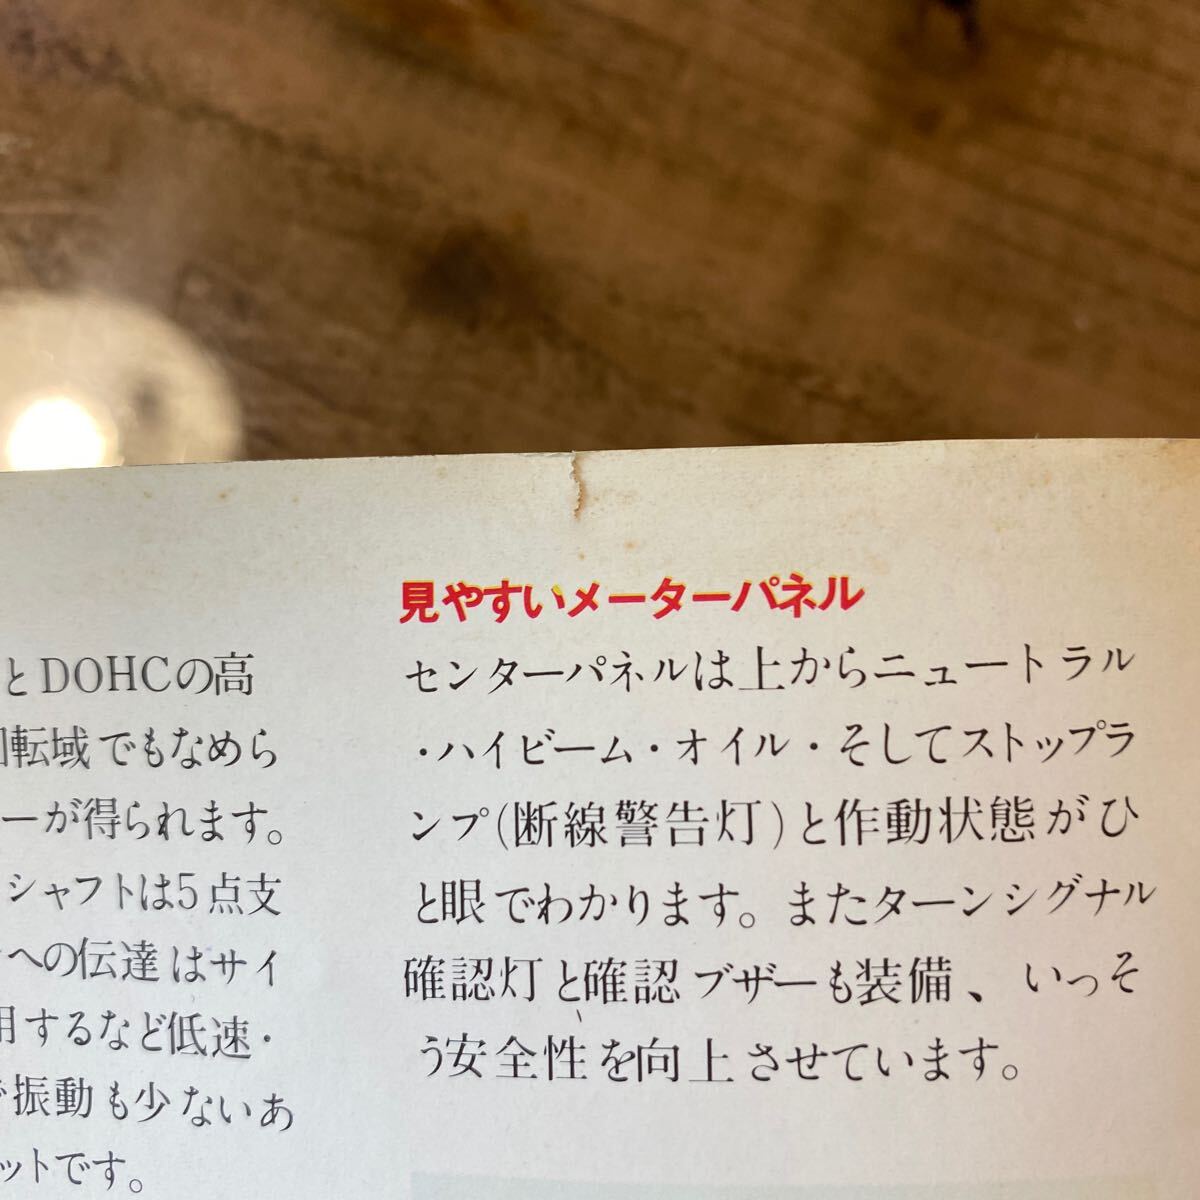 とDOHCの高
回転域でもなめら
ーが得られます。
シャフトは5点支
への伝達はサイ
用するなど低速・
振動も少ないあ
ットです。
見やすいメーターパネル
センターパネルは上からニュートラル
・ハイビーム・オイル・そしてストップラ
ンプ(断線警告灯)と作動状態がひ
と眼でわかります。またターンシグナル
確認灯と確認ブザーも装備、いっそ
う安全性を向上させています。